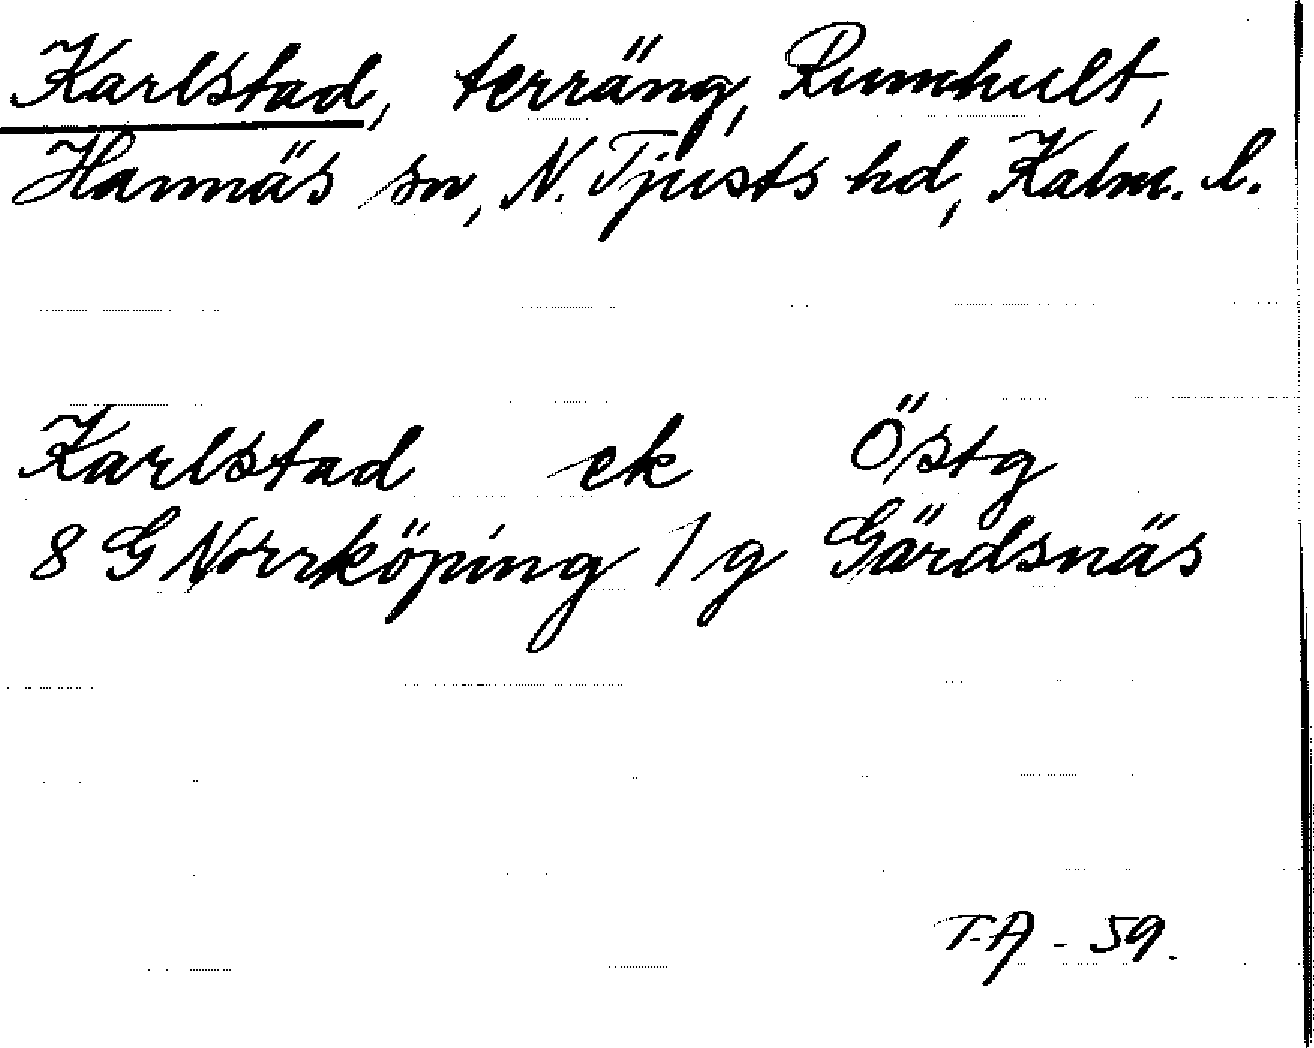 Karlstad, terräng, Rumhult,
Hannäs sn, N. Tjusts hd, Kalm. l.
Karlstad ek Östg
8 G Norrköping 1 g Gärdsnäs
T.A - 59.